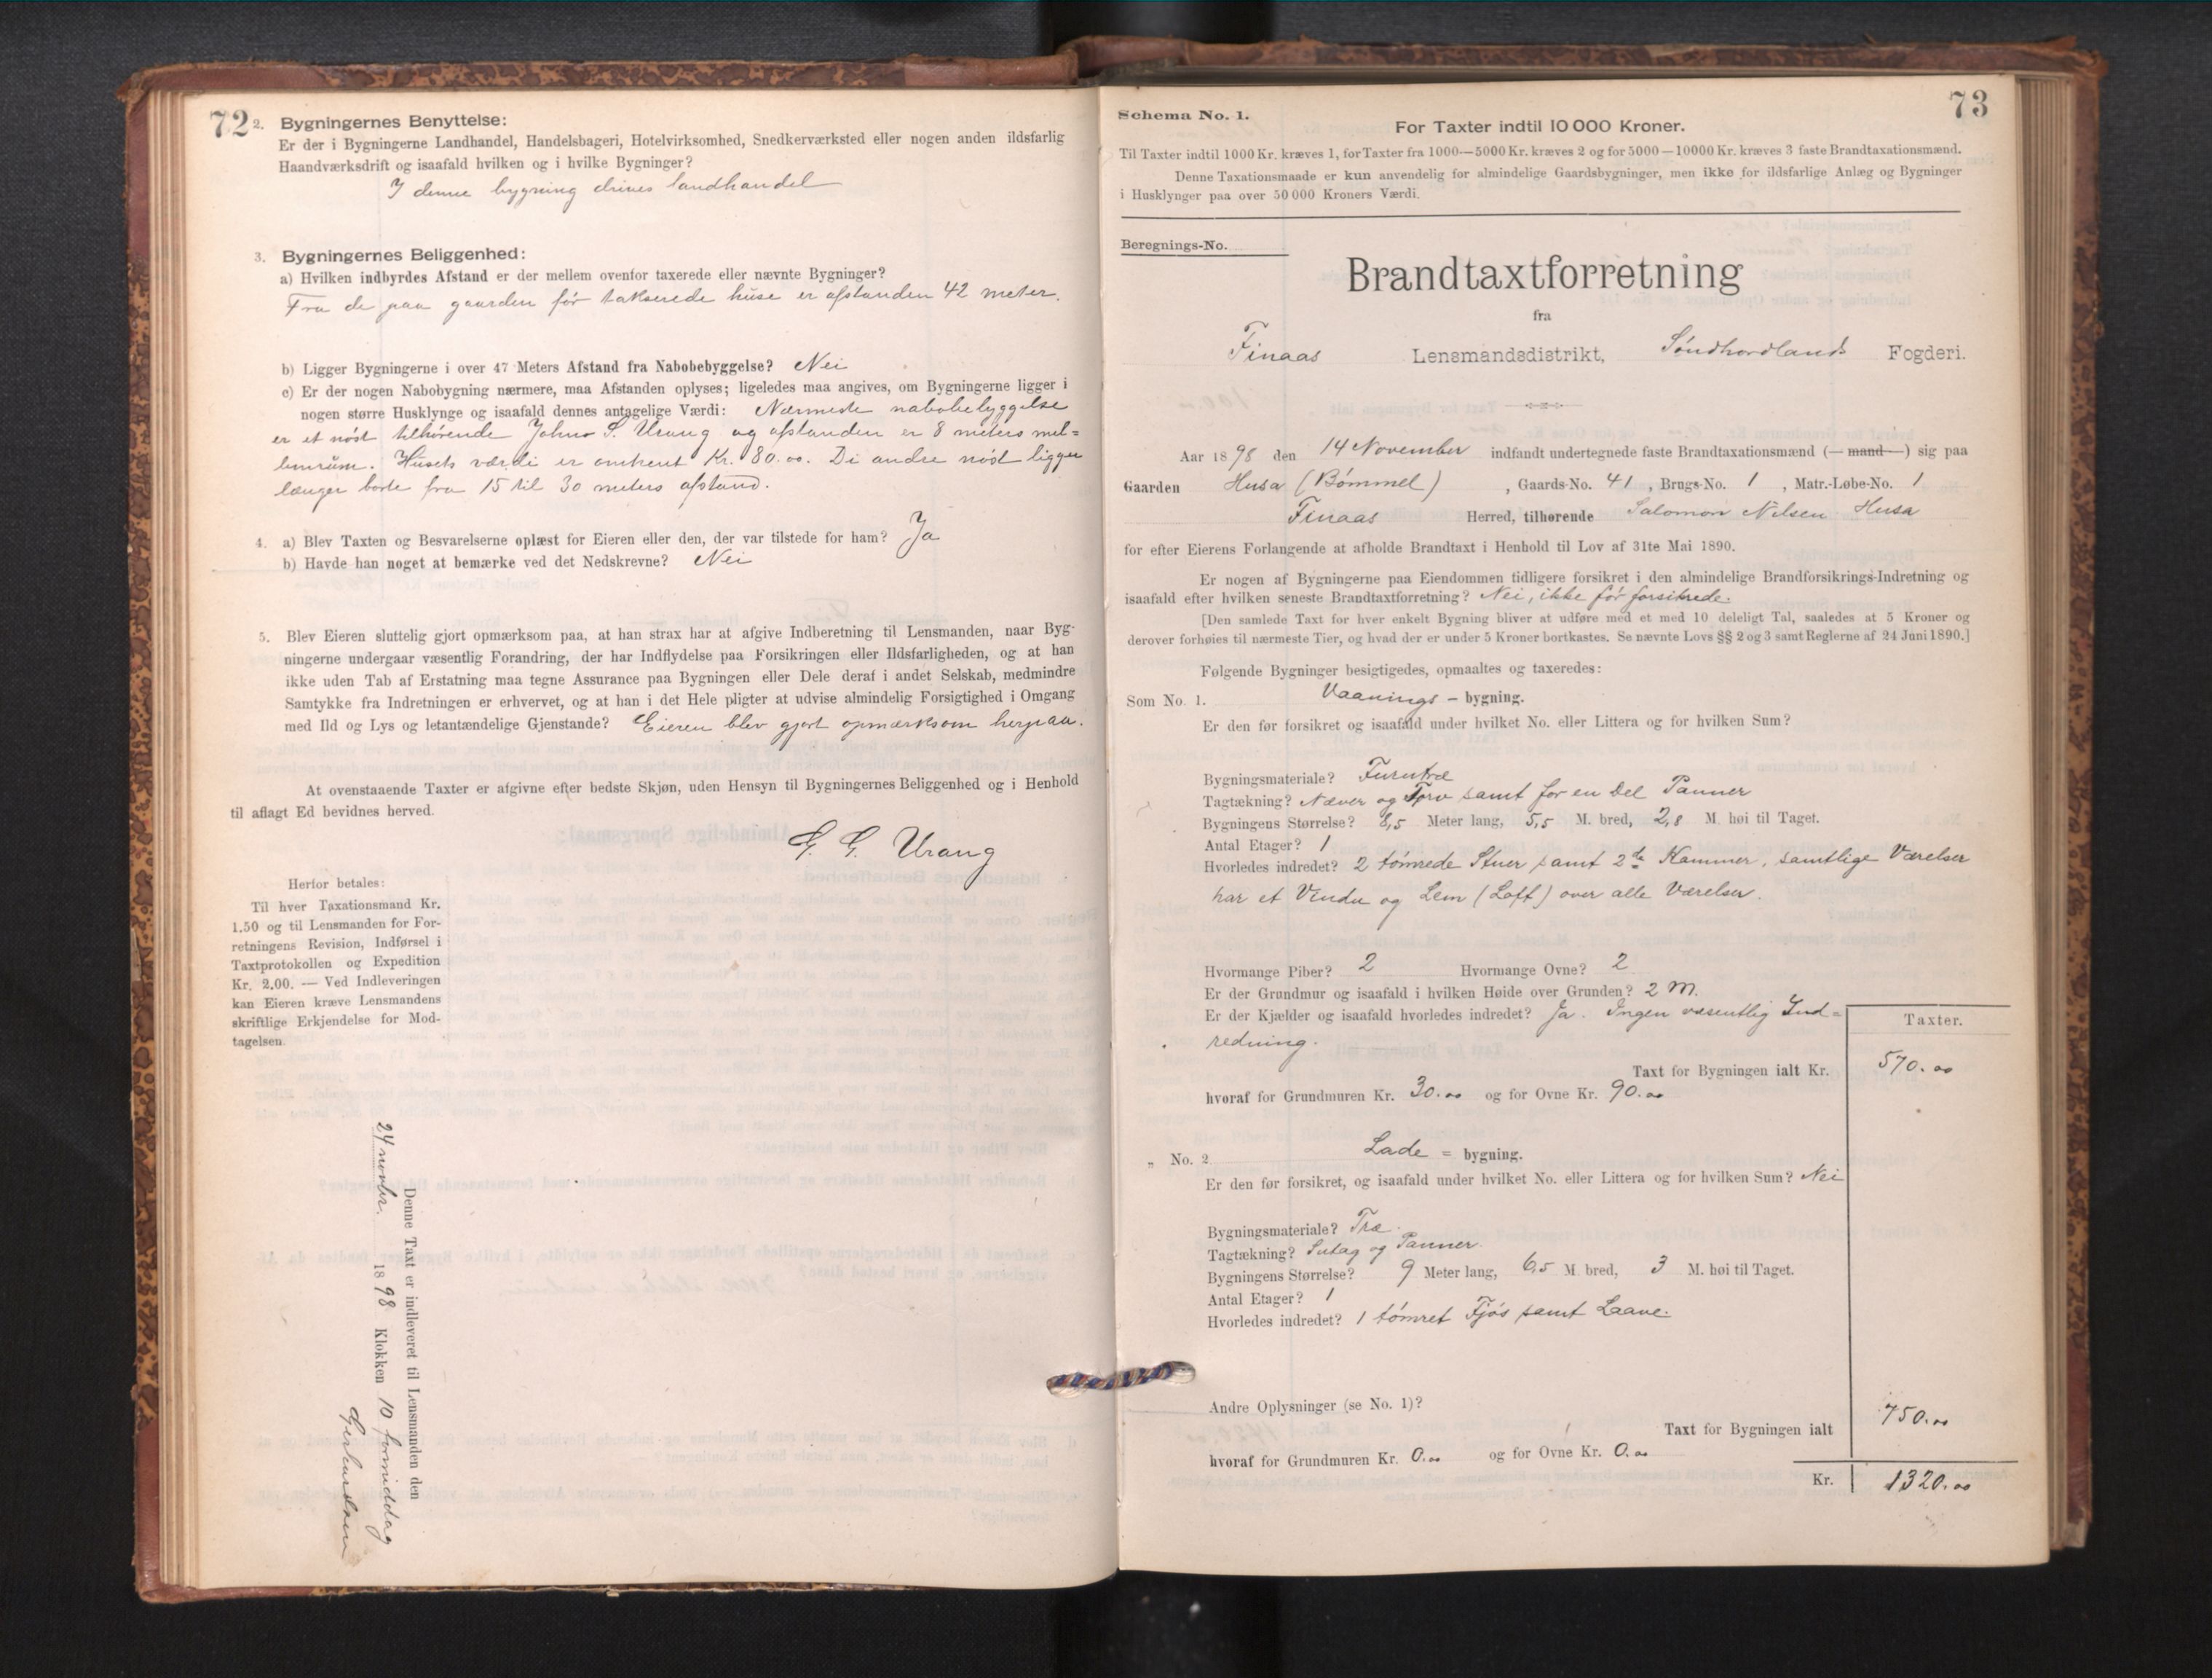 72
2. Bygningernes Benyttelse:
Er der i Bygningerne Landhandel, Handelsbageri, Hotelvirksomhed, Snedkerværksted eller nogen anden ildsfarlig
Haandværksdrift og isaafald hvilken og i hvilke Bygninger?
I denne bygning drives landhandel
3. Bygningernes Beliggenhed:
a) Hvilken indbyrdes Afstand er der mellem ovenfor taxerede eller nævnte Bygninger?
Fra de paa gaarden før takserede huse er afstanden 42 meter.
b) Ligger Bygningerne i over 47 Meters Afstand fra Nabobebyggelse? Nei
c) Er der nogen Nabobygning nærmere, maa Afstanden oplyses; ligeledes maa angives, om Bygningerne ligger i
nogen større Husklynge og isaafald dennes antagelige Værdi: Nærmeste nabobebyggelse
er et nøst tilhørende Johns S. Urang og afstanden er 8 meters mel=
lemrum. Husets værdi er omkrent Kr. 80.00. De andre nøst ligger
længer borte fra 15 til 30 meters afstand.
4. a) Blev Taxten og Besvarelserne oplæst for Eieren eller den, der var tilstede for ham? Ja
b) Havde han noget at bemærke ved det Nedskrevne? Nei
5. Blev Eieren sluttelig gjort opmærksom paa, at han strax har at afgive Indberetning til Lensmanden, naar Byg-
ningerne undergaar væsentlig Forandring, der har Indflydelse paa Forsikringen eller Ildsfarligheden, og at han
ikke uden Tab af Erstatning maa tegne Assurance paa Bygningen eller Dele deraf i andet Selskab, medmindre
Samtykke fra Indretningen er erhvervet, og at han i det Hele pligter at udvise almindelig Forsigtighed i Omgang
med Ild og Lys og letantændelige Gjenstande? Eieren blev gjort opmærksom herpaa.
At ovenstaaende Taxter er afgivne efter bedste Skjøn, uden Hensyn til Bygningernes Beliggenhed og i Henhold
til aflagt Ed bevidnes herved.
G. G. Urang
Herfor betales:
Til hver Taxationsmand Kr.
1.50 og til Lensmanden for For-
retningens Revision, Indførsel i
Taxtprotokollen og Expedition
Kr. 2.00. — Ved Indleveringen
kan Eieren kræve Lensmandens
skriftlige Erkjendelse for Mod-
tagelsen.
Denne Taxt er indleveret til Lensmanden den
24 novbr. 1898 Klokken 10 formiddag
Gerhardsen
73
Schema No. 1.
For Taxter indtil 10 000 Kroner.
Til Taxter indtil 1000 Kr. kræves 1, for Taxter fra 1000—5000 Kr. kræves 2 og for 5000—10000 Kr. kræves 3 faste Brandtaxationsmænd.
Denne Taxationsmaade er kun anvendelig for almindelige Gaardsbygninger, men ikke for ildsfarlige Anlæg og Bygninger
i Husklynger paa over 50 000 Kroners Værdi.
Beregnings-No.
Brandtaxtforretning
fra
Finaas Lensmandsdistrikt, Søndhordlands Fogderi.
Aar 1898 den 14 November indfandt undertegnede faste Brandtaxationsmænd (—mand—) sig paa
Gaarden Husa (Bømmel), Gaards-No. 41, Brugs-No. 1, Matr.-Løbe-No. 1
Finaas Herred, tilhørende Salomon Nilsen Husa
for efter Eierens Forlangende at afholde Brandtaxt i Henhold til Lov af 31te Mai 1890.
Er nogen af Bygningerne paa Eiendommen tidligere forsikret i den almindelige Brandforsikrings-Indretning og
isaafald efter hvilken seneste Brandtaxtforretning? Nei, ikke før forsikrede.
[Den samlede Taxt for hver enkelt Bygning bliver at udføre med et med 10 deleligt Tal, saaledes at 5 Kroner og
derover forhøies til nærmeste Tier, og hvad der er under 5 Kroner bortkastes. Se nævnte Lovs §§ 2 og 3 samt Reglerne af 24 Juni 1890.]
Følgende Bygninger besigtigedes, opmaaltes og taxeredes:
Som No. 1. Vaanings - bygning.
Er den før forsikret og isaafald under hvilket No. eller Littera og for hvilken Sum?
Bygningsmateriale? Furutræ
Tagtækning? Næver og Torv samt for en Del Panner
Bygningens Størrelse? 8,5 Meter lang, 5,5 M. bred, 2,8 M. høi til Taget.
Antal Etager? 1
Hvorledes indredet? 2 tømrede Stuer samt 2de Kammer, samtlige Værelser
har et Vindu og Lem (Loft) over alle Værelser.
Hvormange Piber? 2 Hvormange Ovne? 2
Er der Grundmur og isaafald i hvilken Høide over Grunden? 2 M.
Er der Kjælder og isaafald hvorledes indredet? Ja. Ingen væsentlig Ind=
redning.
Taxter.
Taxt for Bygningen ialt Kr. 570.00
hvoraf for Grundmuren Kr. 30.00 og for Ovne Kr. 90.00
„ No. 2 Lade = bygning.
Er den før forsikret, og isaafald under hvilket No. eller Littera og for hvilken Sum? Nei
Bygningsmateriale? Træ.
Tagtækning? Sutag og Panner.
Bygningens Størrelse? 9 Meter lang, 6,5 M. bred, 3 M. høi til Taget.
Antal Etager? 1
Hvorledes indredet? 1 tømret Fjøs samt Laave.
Andre Oplysninger (se No. 1)?
Taxt for Bygningen ialt 750.00
hvoraf for Grundmuren Kr. 0.00 og for Ovne Kr. 0.00
Kr. 1320.00